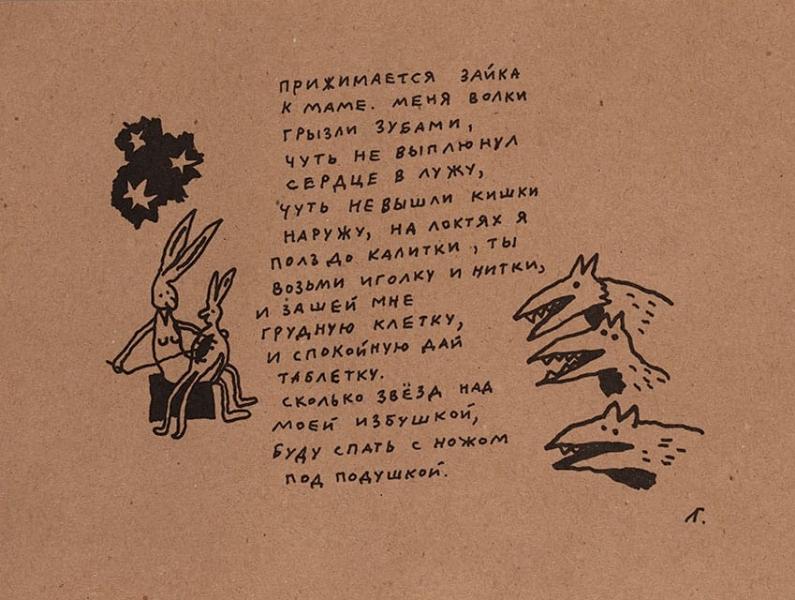 ПРИЖИМАЕТСЯ ЗАЙКА
К МАМЕ. МЕНЯ ВОЛКИ
ГРЫЗЛИ ЗУБАМИ,
ЧУТЬ НЕ ВЫПЛЮНУЛ
СЕРДЦЕ В ЛУЖУ,
ЧУТЬ НЕ ВЫШЛИ КИШКИ
НАРУЖУ, НА ЛОКТЯХ Я
ПОЛЗ ДО КАЛИТКИ, ТЫ
ВОЗЬМИ ИГОЛКУ И НИТКИ,
И ЗАШЕЙ МНЕ
ГРУДНУЮ КЛЕТКУ,
И СПОКОЙНУЮ ДАЙ
ТАБЛЕТКУ.
СКОЛЬКО ЗВЁЗД НАД
МОЕЙ ИЗБУШКОЙ,
БУДУ СПАТЬ С НОЖОМ
ПОД ПОДУШКОЙ.